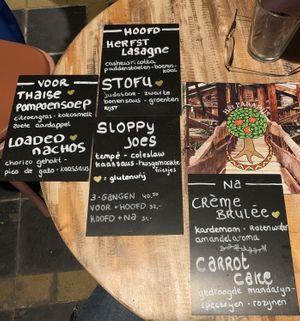 VOOR
THAISE
POMPOENSOEP
citroengras - kokosmelk
zoete aardappel
LOADED
NACHOS
chorizo gehakt -
pico de gallo - kaassaus
HOOFD
HERFST
Lasagne
cashewricotta
paddenstoelen - boeren-
kool
STOFU
sudasaise - zwarte
bonensaus - groenten
rijst
SLOPPY
JOES
tempé - coleslaw
kaassaus - huisgemaakte
frietjes
= glutenvrij
3-GANGEN 40.50
VOOR + HOOFD 32,-
HOOFD + NA 31,-
NA
CRÈME
BRULÉE
kardemom - rozenwater
amandelaroma
CARROT
CAKE
gedroogde mandarijn-
rozijnen